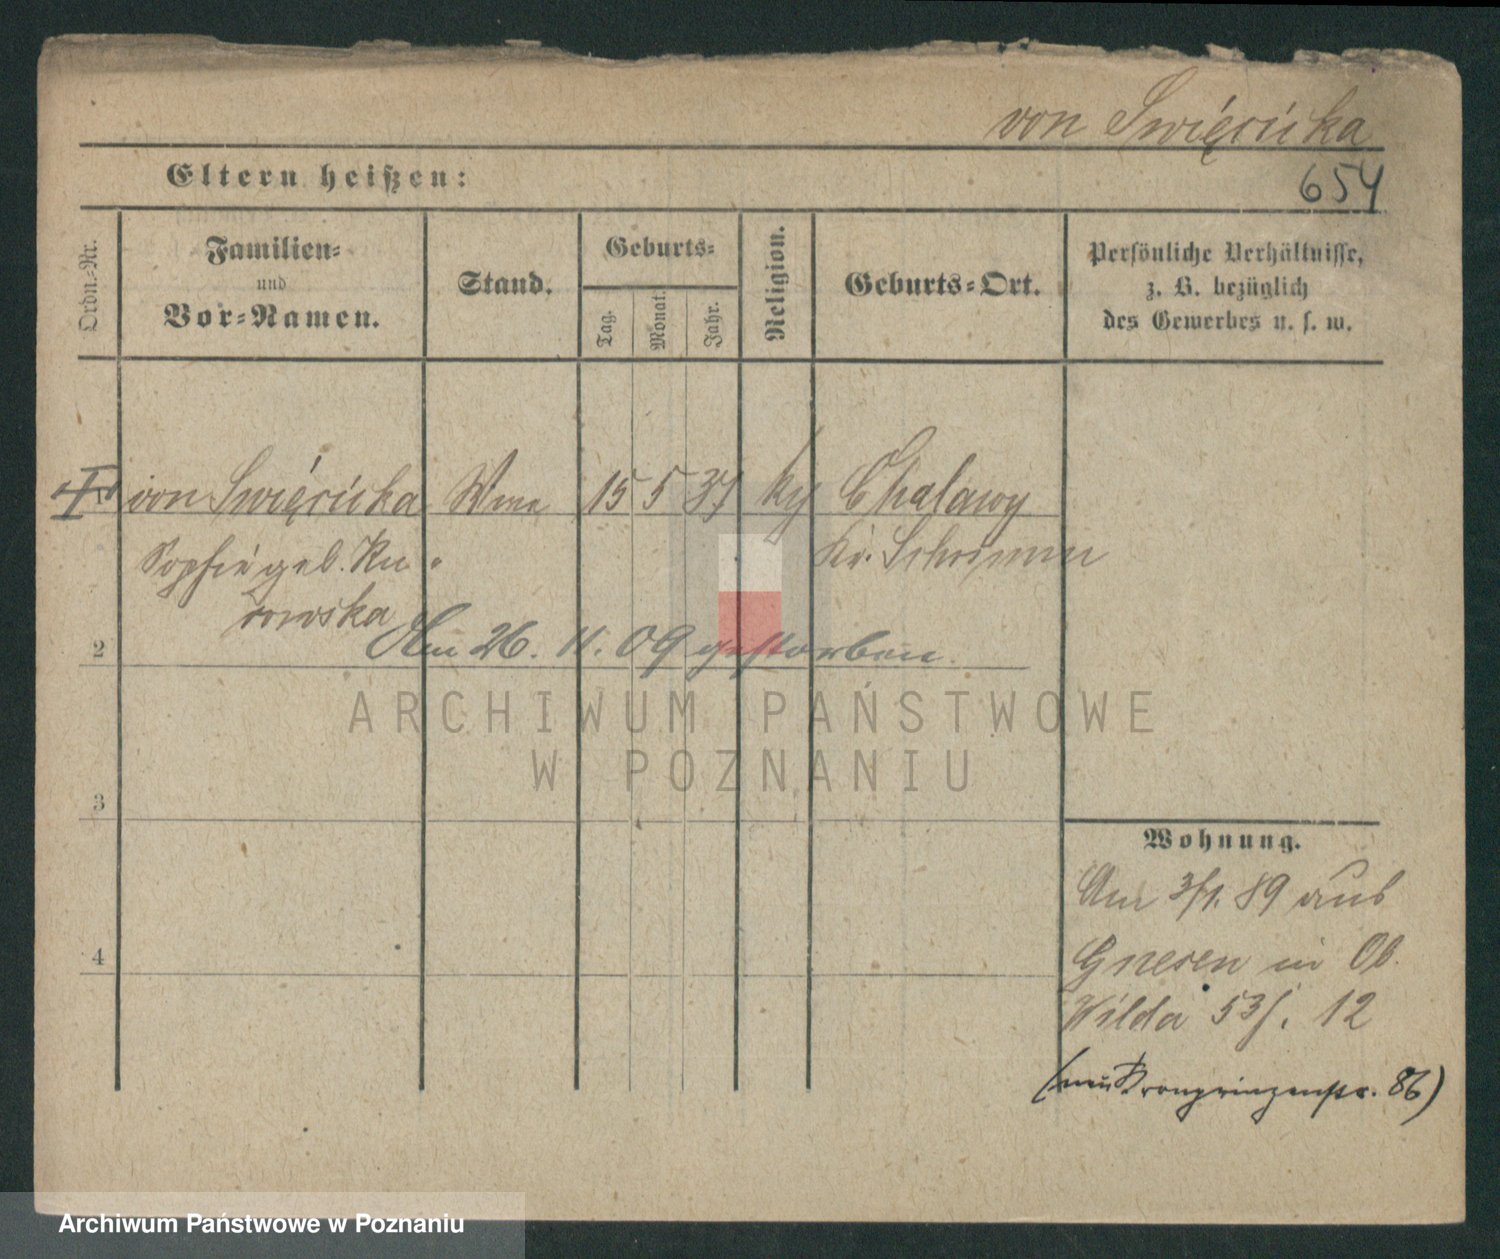 von Święcicka
Eltern heißen:
654
Ordn.-Nr.
Familien-
und
Vor-Namen.
Stand.
Geburts-
Tag.
Monat.
Jahr.
Religion.
Geburts-Ort.
Persönliche Verhältnisse,
z. B. bezüglich
des Gewerbes u. s. w.
1 von Święcicka Wwe 15 5 37 Chalawy
Sophie geb. Ku-
rowska
Kr. Schrimm
Am 26. 11. 09 gestorben.
2
3
4
Wohnung.
Am 3/1. 89 aus
Gnesen in Ob.
Wilda 53/. 12
(neu Kronprinzenstr. 86)
ARCHIWUM PAŃSTWOWE
W POZNANIU
Archiwum Państwowe w Poznaniu